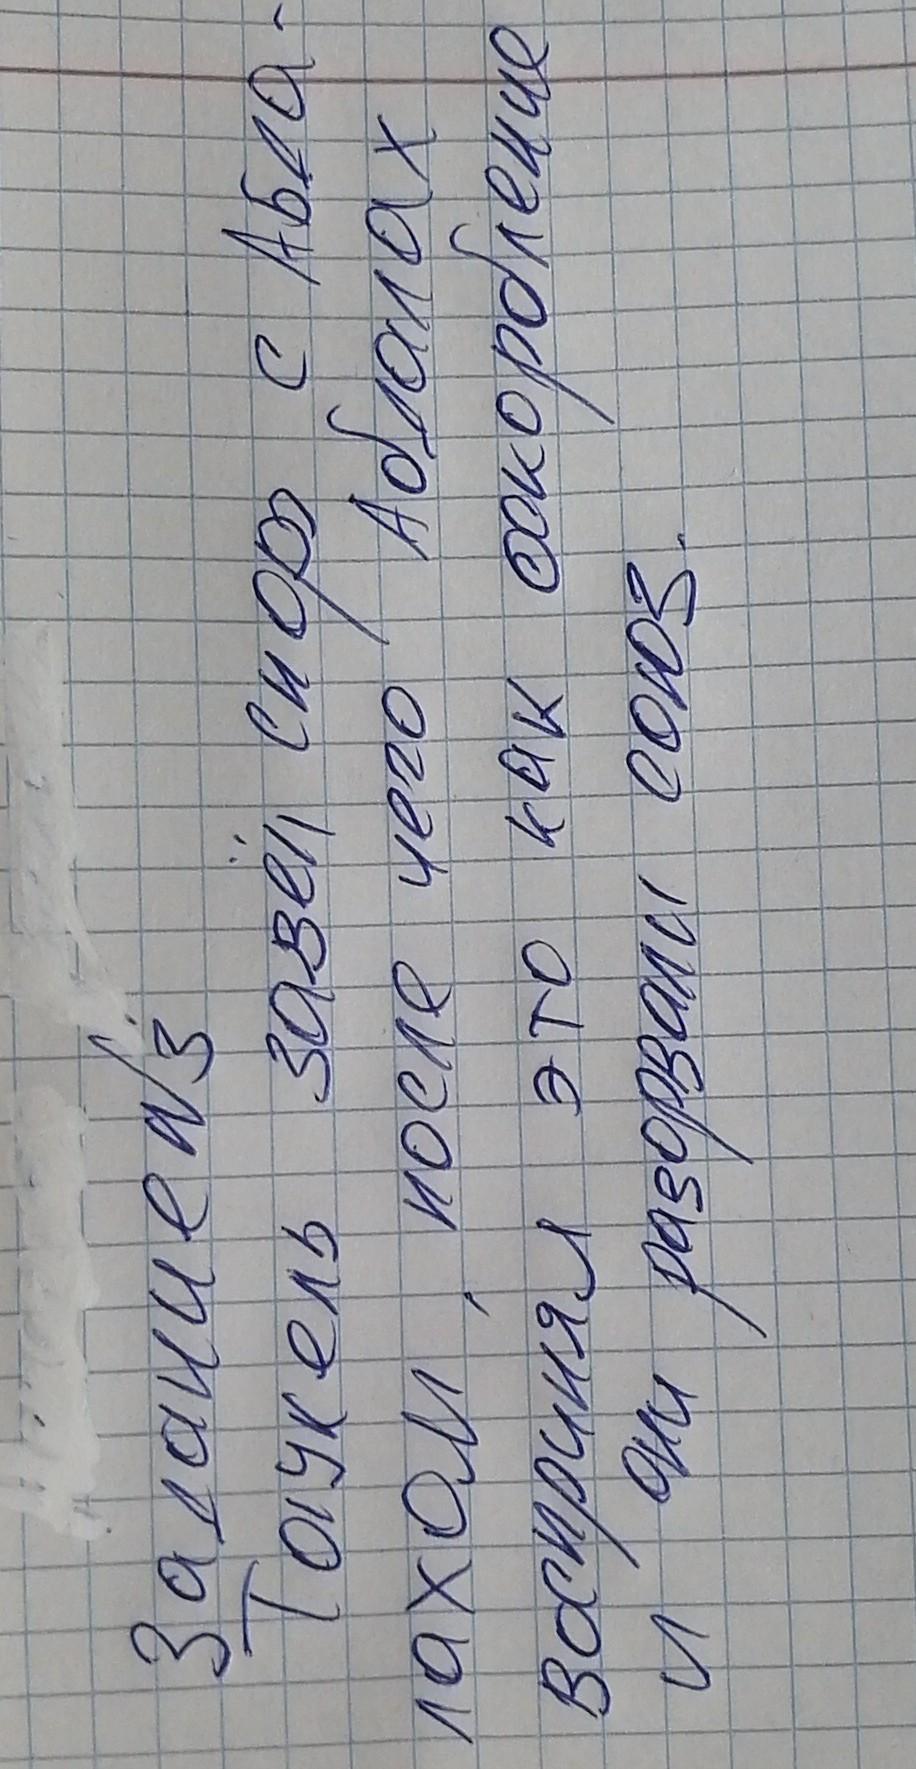 Задание №3
Таукель завёл спор с Абла-
лахом, после чего Аблалах
воспринял это как оскорбление
и они разорвали союз.